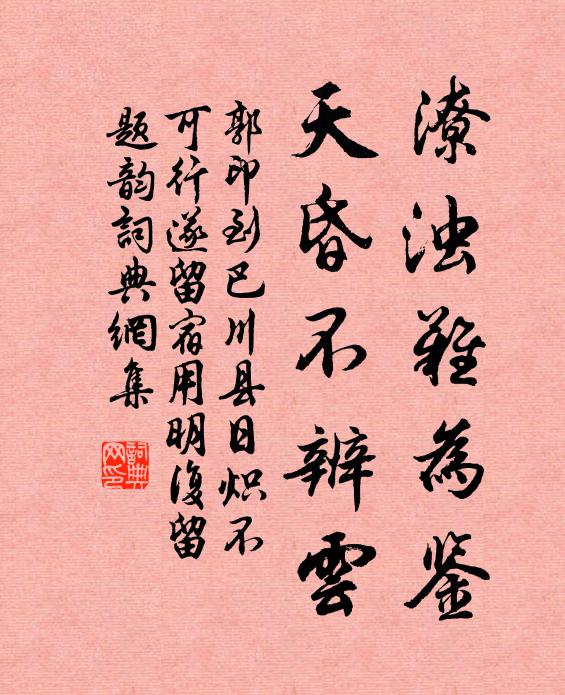 潦浊難為鉴
天昏不辨雲
郭印到巴川县日炽不
可行遂留宿用明復留
题韵詞典網集
詞典
网印